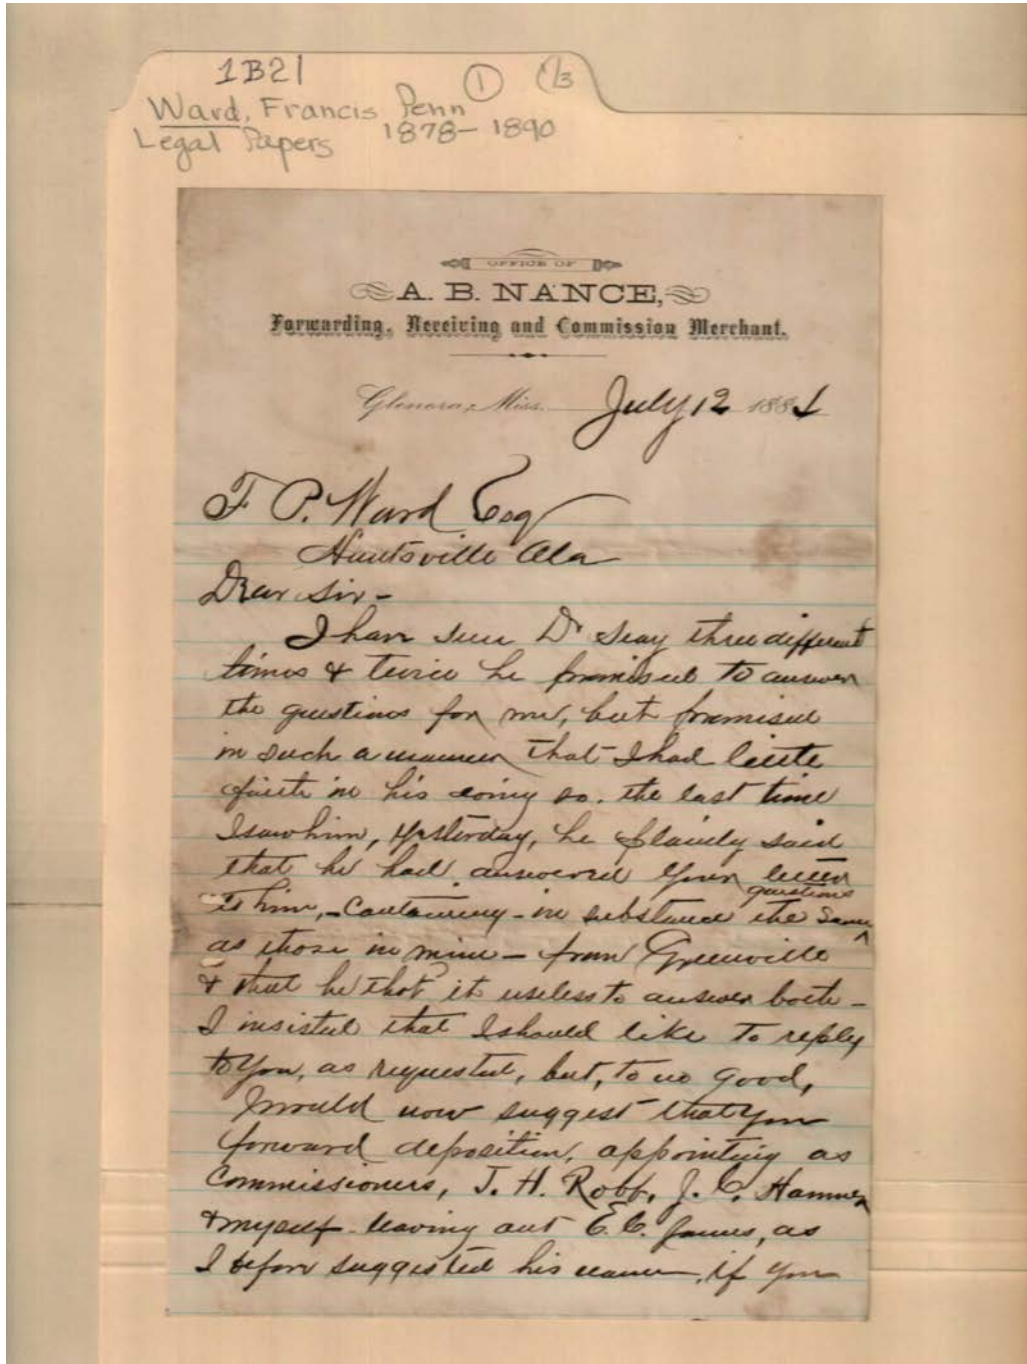 1B21 ① 1/3
Ward, Francis Penn
Legal Papers 1878-1890
OFFICE OF
A. B. NANCE,
Forwarding, Receiving and Commission Merchant.
Glenora, Miss. July 12 1881
F. P. Ward Esq
Huntsville Ala
Dear Sir -
I have seen Dr Seay three different
times & twice he promised to answer
the questions for me, but promised
in such a manner that I had little
faith in his doing so. the last time
I saw him, yesterday, he plainly said
that he had answered your letter
questions
to him, - containing - in substance the same
as those in mine - from Greenville
& that he thot it useless to answer both -
I insisted that I should like to reply
to you, as requested, but, to no good,
I would now suggest that you
forward deposition, appointing as
Commissioners, J. H. Robb, J. C. Hammer
& myself leaving out E. C. James, as
I before suggested his name, if you